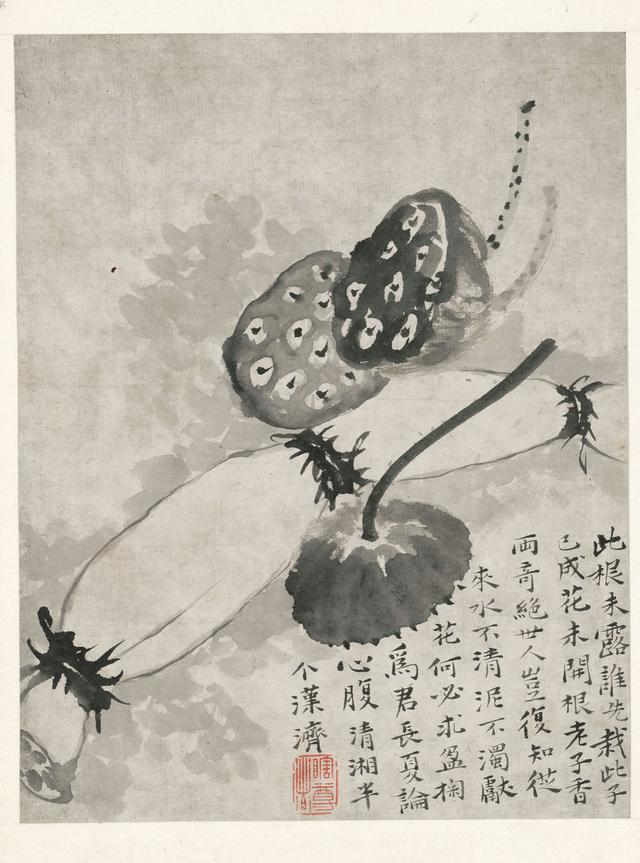 此根未露誰先栽此子
已成花未開根老子香
両奇絕世人豈復知從
來水不清泥不濁獻
花何必求盈掬
爲君長夏論
心腹清湘半
个漢濟
瞎尊者